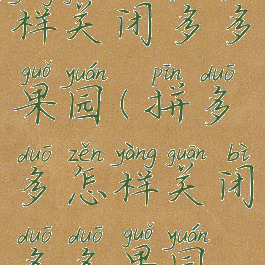 样关闭多多
guǒ yuán pīn duō
果园(拼多
duō zěn yàng guān bì
多怎样关闭
duō duō guǒ yuán
多多果园